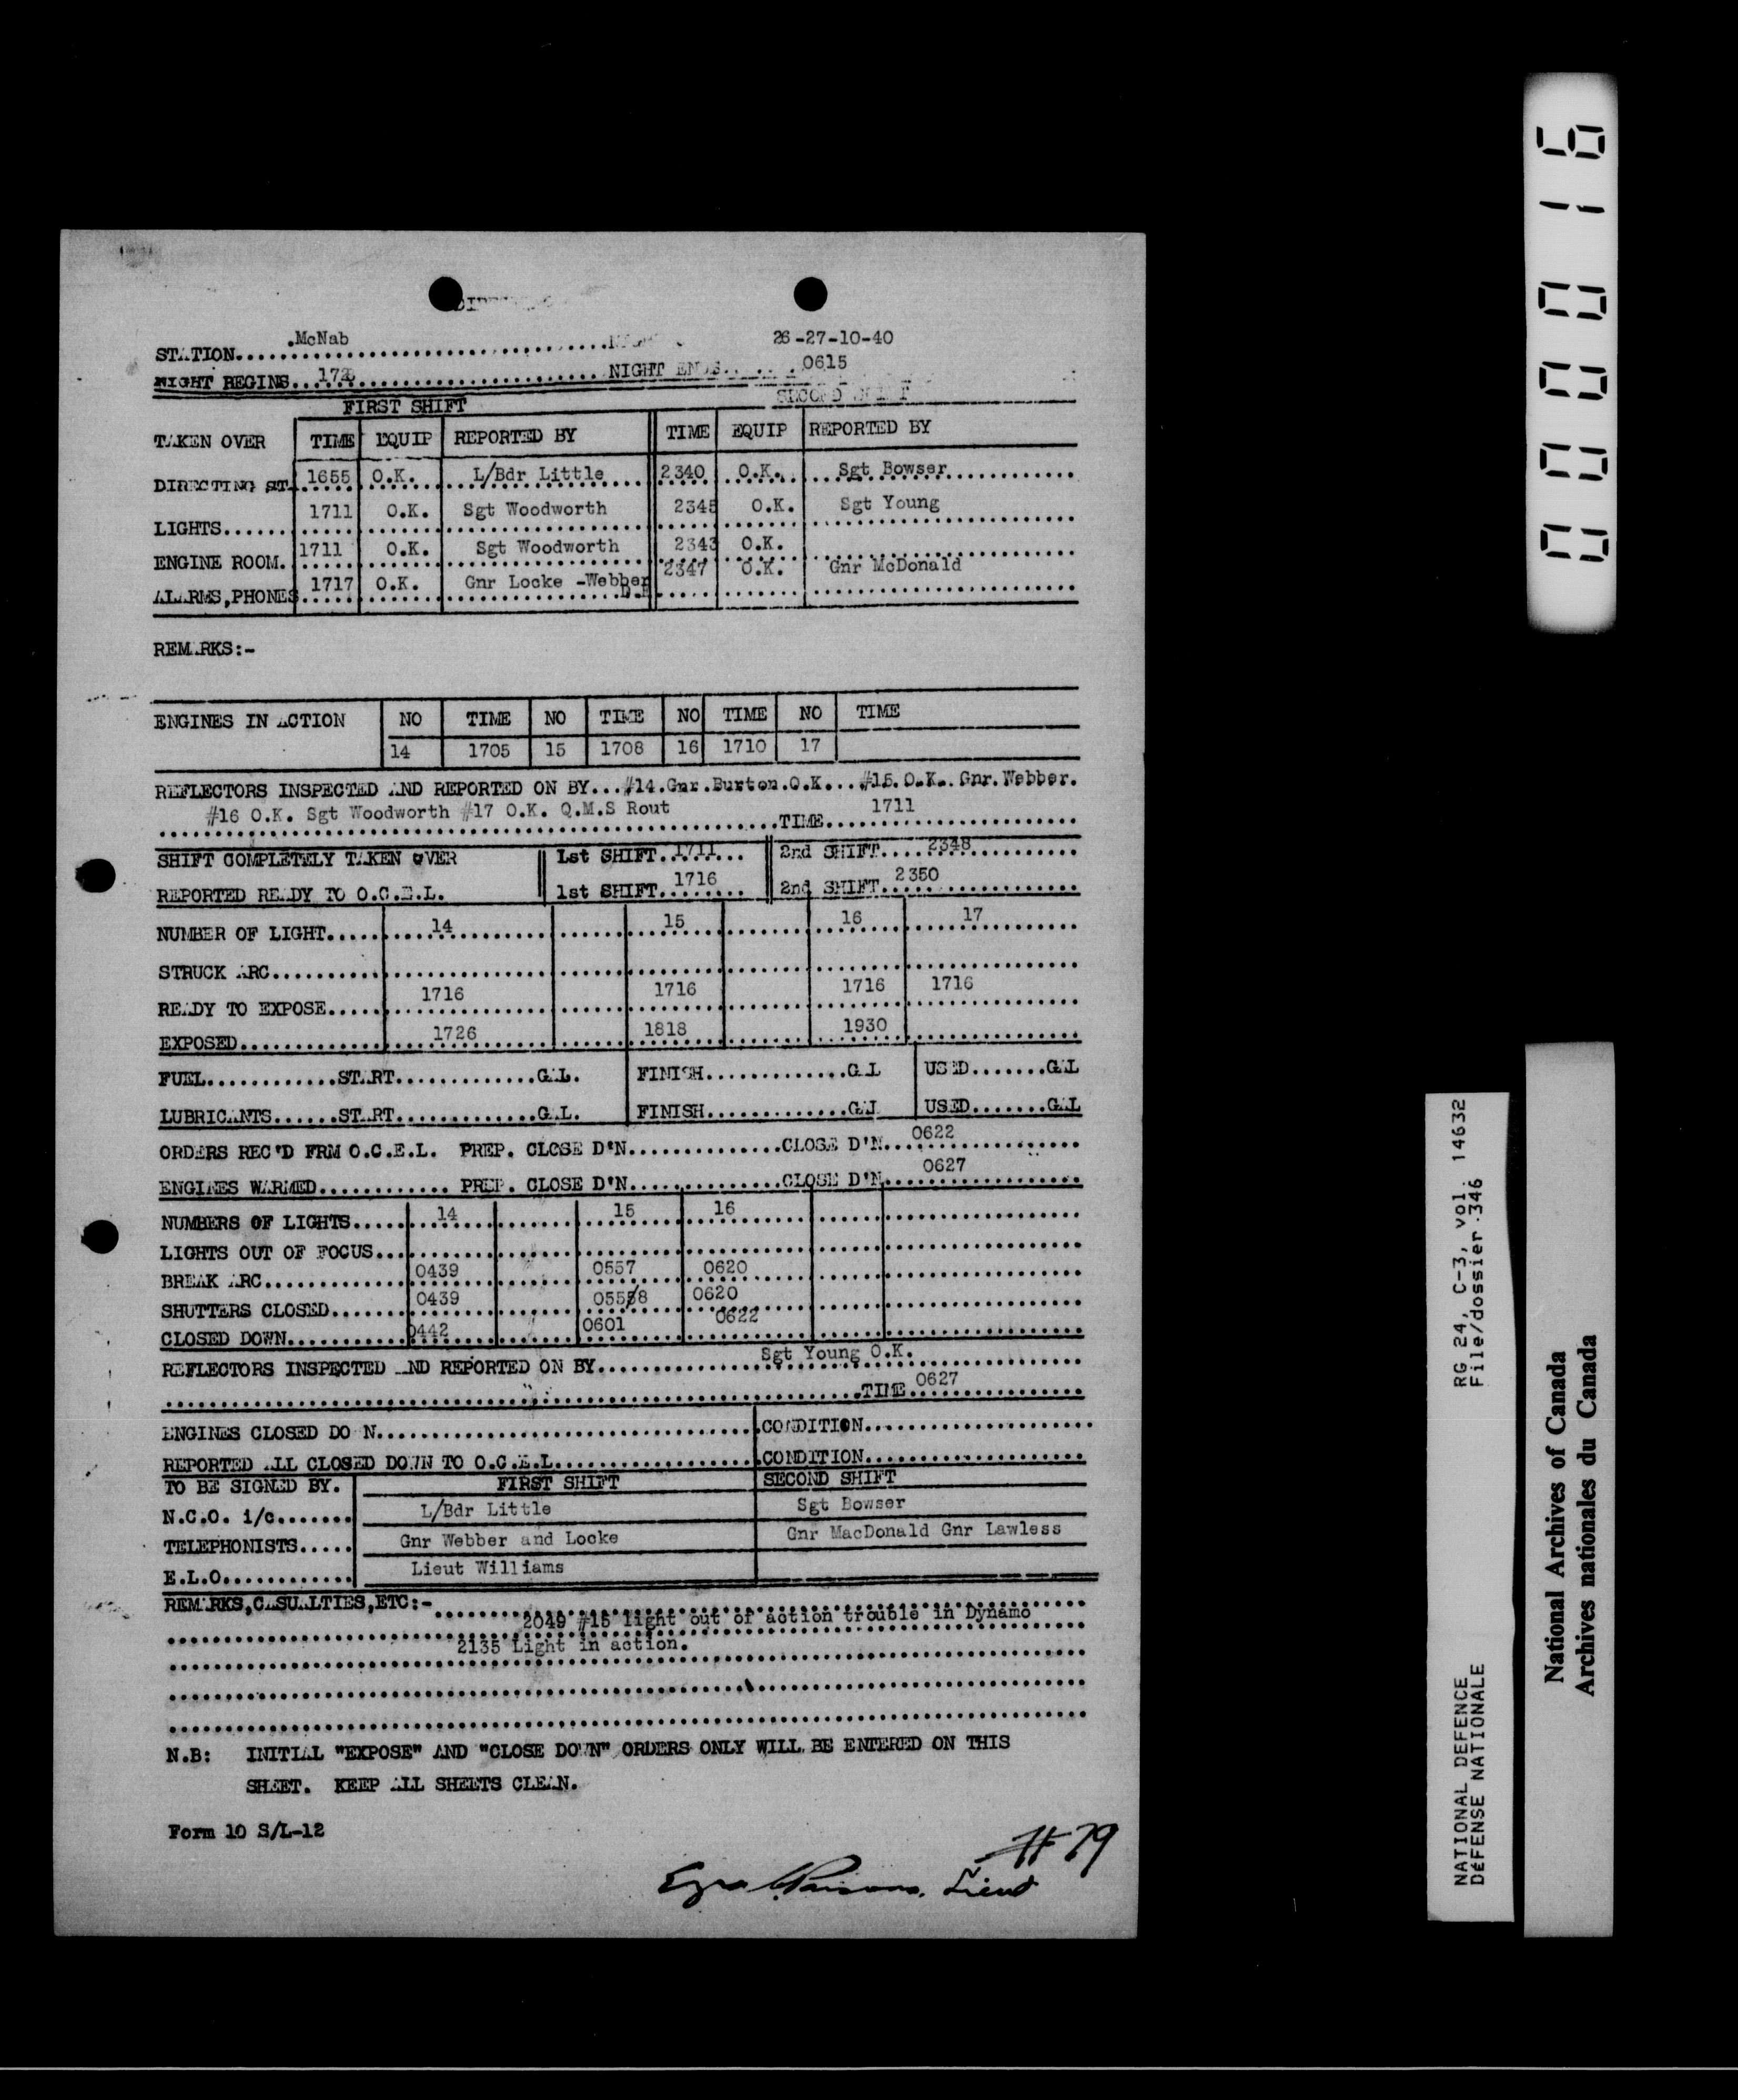 STATION... McNab ... 26-27-10-40
NIGHT BEGINS... NIGHT ENDS... 0615
FIRST SHIFT SECOND SHIFT
TAKEN OVER TIME EQUIP REPORTED BY TIME EQUIP REPORTED BY
DIRECTING ST. 1655 O.K. L/Bdr Little 2340 O.K. Sgt Bowser
LIGHTS...... 1711 O.K. Sgt Woodworth 2345 O.K. Sgt Young
ENGINE ROOM. 1711 O.K. Sgt Woodworth 2343 O.K.
ALARMS,PHONES 1717 O.K. Gnr Locke -Webber 2347 O.K. Gnr McDonald
REMARKS:-
ENGINES IN ACTION NO TIME NO TIME NO TIME NO TIME
14 1705 15 1708 16 1710 17
REFLECTORS INSPECTED AND REPORTED ON BY...#14.Gnr.Burton.O.K...#15.O.K..Gnr.Webber.
#16 O.K. Sgt Woodworth #17 O.K. Q.M.S Rout TIME 1711
SHIFT COMPLETELY TAKEN OVER 1st SHIFT 1711 2nd SHIFT 2348
REPORTED READY TO O.C.E.L. 1st SHIFT 1716 2nd SHIFT 2350
NUMBER OF LIGHT 14 15 16 17
STRUCK ARC
READY TO EXPOSE 1716 1716 1716 1716
EXPOSED 1726 1818 1930
FUEL............START.............GAL. FINISH.............GAL USED.......GAL
LUBRICANTS......START.............GAL. FINISH.............GAL USED.......GAL
ORDERS REC'D FRM O.C.E.L. PREP. CLOSE D'N..............CLOSE D'N... 0622
ENGINES WARMED............ PREP. CLOSE D'N..............CLOSE D'N 0627
NUMBERS OF LIGHTS 14 15 16
LIGHTS OUT OF FOCUS...
BREAK ARC 0439 0557 0620
SHUTTERS CLOSED 0439 0555/8 0620
CLOSED DOWN 0442 0601 0622
REFLECTORS INSPECTED AND REPORTED ON BY Sgt Young O.K.
TIME 0627
ENGINES CLOSED DO N CONDITION
REPORTED ALL CLOSED DOWN TO O.C.E.L. CONDITION
TO BE SIGNED BY. FIRST SHIFT SECOND SHIFT
N.C.O. i/c....... L/Bdr Little Sgt Bowser
TELEPHONISTS..... Gnr Webber and Locke Gnr MacDonald Gnr Lawless
E.L.O............ Lieut Williams
REMARKS,CASUALTIES,ETC:-
2049 #15 light out of action trouble in Dynamo
2135 Light in action.
N.B: INITIAL "EXPOSE" AND "CLOSE DOWN" ORDERS ONLY WILL BE ENTERED ON THIS
SHEET. KEEP ALL SHEETS CLEAN.
Form 10 S/L-12
#79
Lieut
000016
RG 24, C-3, vol. 14632
File/dossier 346
NATIONAL DEFENCE
DÉFENSE NATIONALE
National Archives of Canada
Archives nationales du Canada